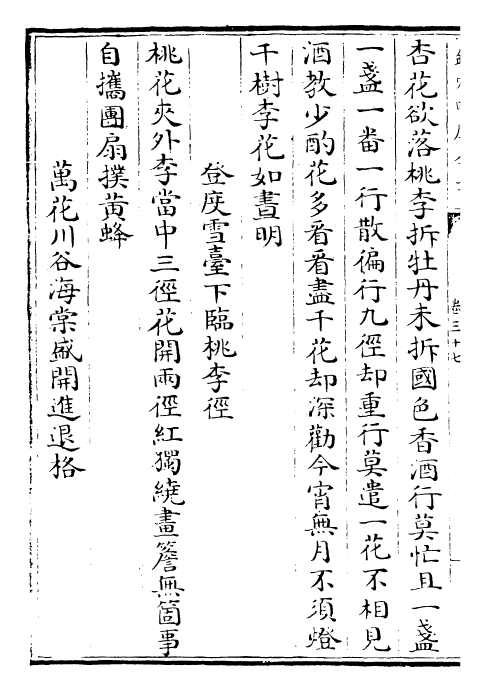 杏花欲落桃李拆牡丹未拆國色香酒行莫忙且一盞
一盞一畨一行散徧行九徑却重行莫遣一花不相見
酒教少酌花多看看盡千花却深勸今宵無月不須燈
千樹李花如晝明
登度雪臺下臨桃李徑
桃花夾外李當中三徑花開兩徑紅獨繞畫簷無箇事
自攜團扇撲黃蜂
萬花川谷海棠盛開進退格
卷三十七